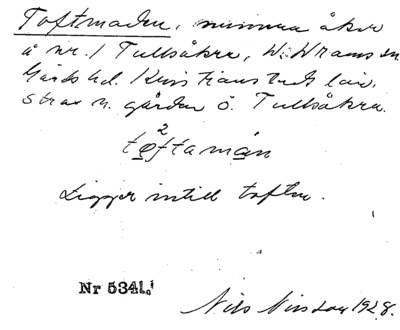 Toftmaden, mindre åker
å nr. 1 Tullsåkra, W. Wrams sn
Gärds hd. Kristianstads län,
strax n. gården ö. Tullsåkra.
2
tǫftamån
Ligger intill toften.
Nr 5341.
Nils Nilsson 1928.